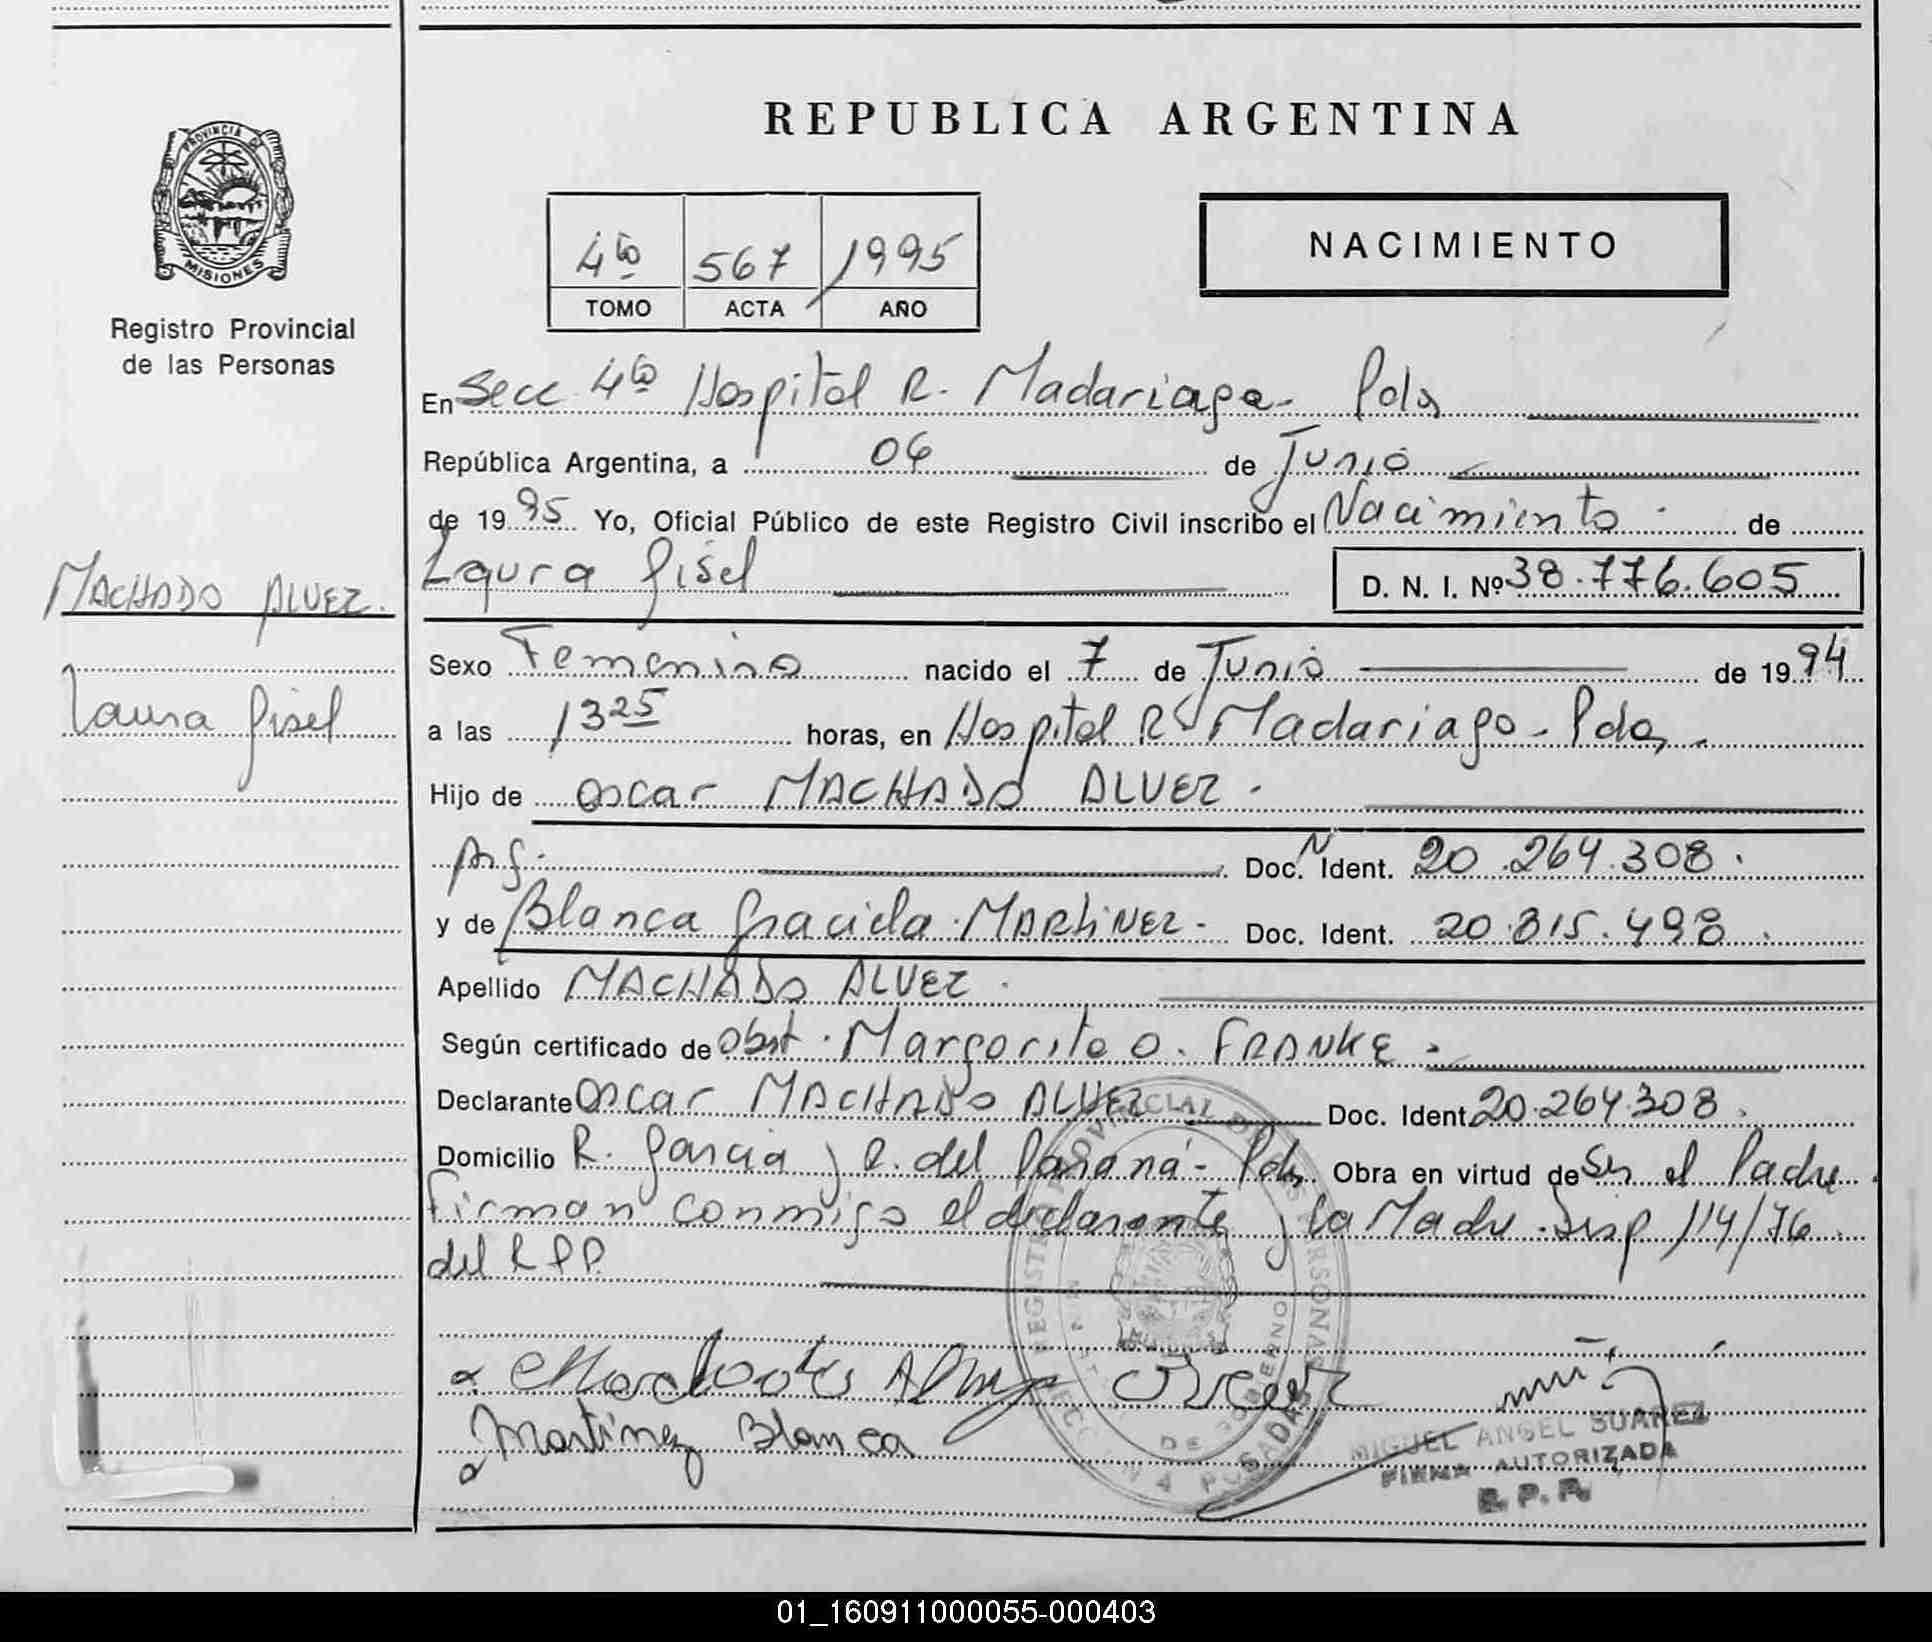 REPUBLICA ARGENTINA
PROVINCIA DE MISIONES
Registro Provincial
de las Personas
4to 567 1995
TOMO ACTA AÑO
NACIMIENTO
En Secc. 4to Hospital R. Madariaga - Pdas
República Argentina, a 06 de Junio
de 1995 Yo, Oficial Público de este Registro Civil inscribo el Nacimiento de
Laura Gisel D. N. I. Nº 38.776.605
MACHADO ALVEZ.
Laura Gisel
Sexo Femenino nacido el 7 de Junio de 1994
a las 1325 horas, en Hospital R. Madariaga - Pdas.
Hijo de Oscar MACHADO ALVEZ.
Arg. Doc. N Ident. 20.264.308.
y de Blanca Graciela MARTINEZ - Doc. Ident. 20.815.498.
Apellido MACHADO ALVEZ.
Según certificado de Obst. Margarita O. FRANKE.
Declarante Oscar MACHADO ALVEZ Doc. Ident. 20.264.308.
Domicilio R. Garcia y R. del Paraná - Pdas Obra en virtud de Ser el Padre.
Firman conmigo el declarante y la Madre. Disp 114/76
del R P P.
Machado Alvez Oscar
Martinez Blanca
REGISTRO PROVINCIAL DE LAS PERSONAS
DE GOBIERNO
POSADAS
MIGUEL ANGEL SUAREZ
FIRMA AUTORIZADA
R. P. P.
01_160911000055-000403